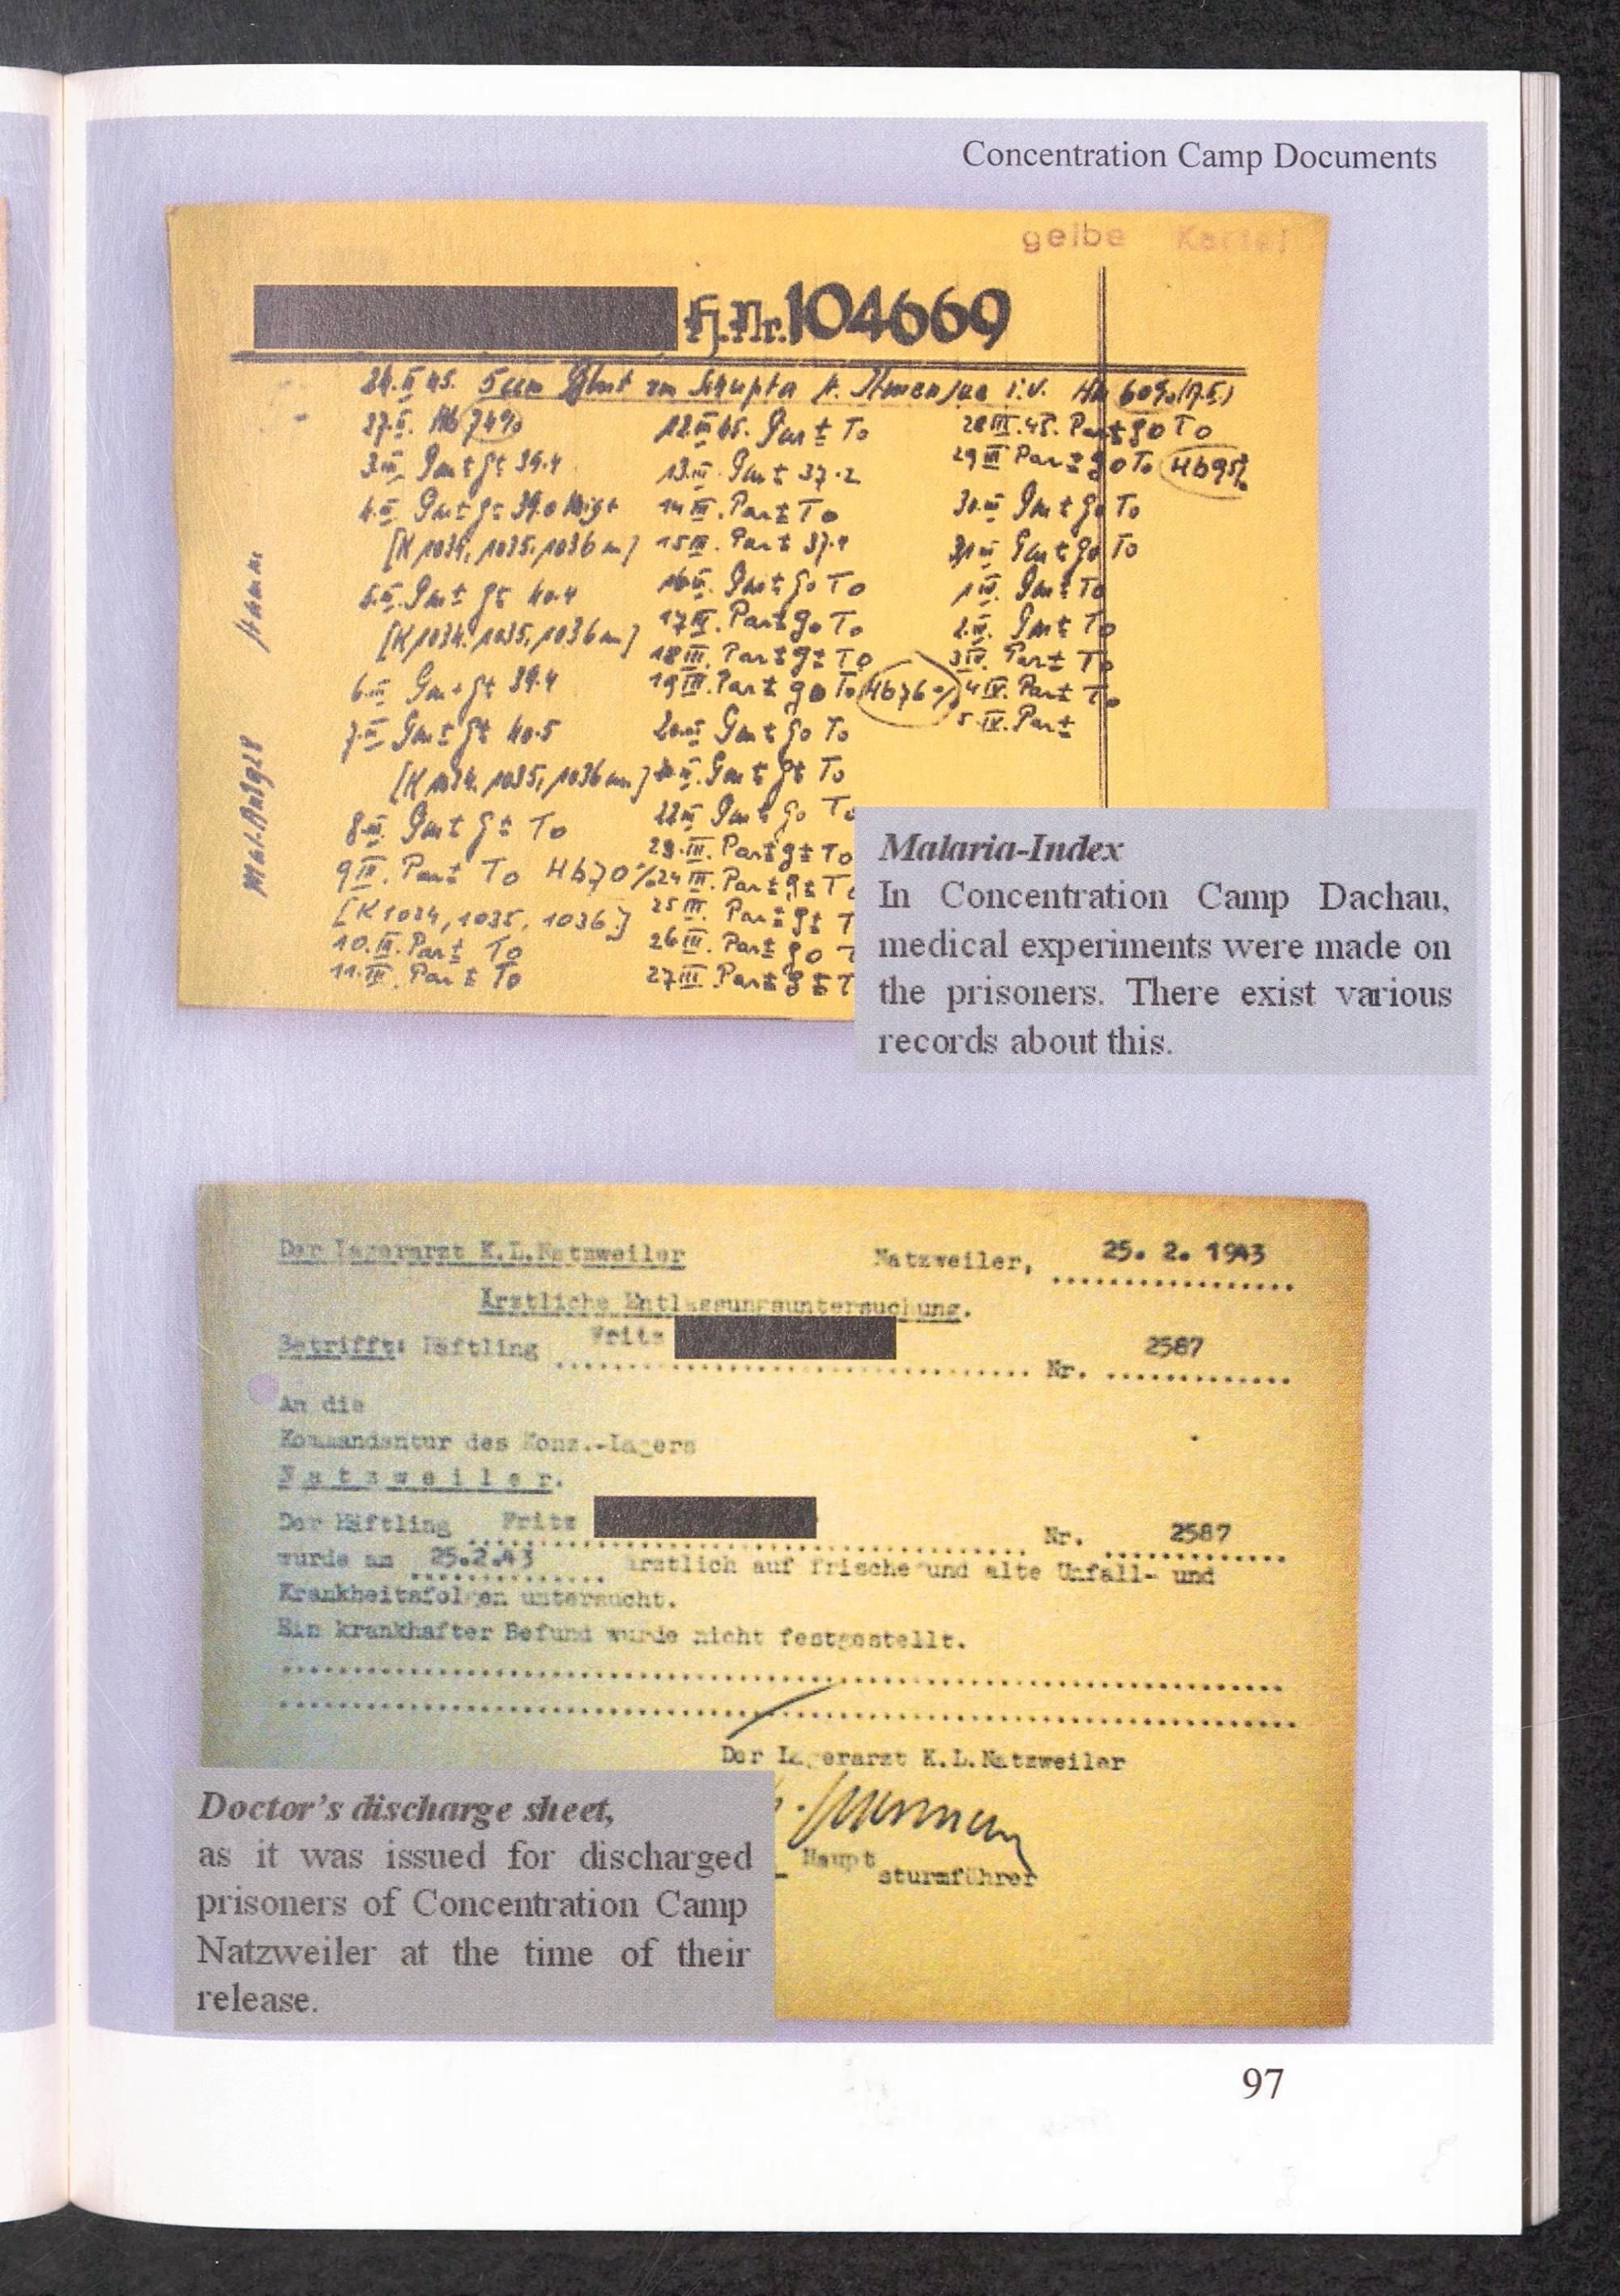 Concentration Camp Documents
gelbe Kartei
H.Nr. 104669
24.II.45. 5 ccm Blut i.v. Hb 60%
27.II. Hb 74%
3.III. 39.4
4.III. 39.0
[K 1034, 1035, 1036 m]
5.III. 40.4
[K 1034, 1035, 1036 m]
6.III. 39.4
7.III. 40.5
[K 1034, 1035, 1036 m]
8.III. To
9III. Par± To Hb70%
[K1034, 1035, 1036]
10.III. Par± To
11.III. Par± To
12.III 45. To
13.III. 37.2
14III. Par± To
15III. Par±
16III. go To
17III. Par± go To
18III. Par± g± To
19III. Par± go To Hb76%
20.III go To
g± To
22III go To
23.III. Par± g± To
24III. Par± g± T
25III. Par± g± T
26III. Par± go T
27III Par± g± T
28III.45. Par± go To
29III Par± go To Hb95%
30.III go To
31III go To
1IV. To
2.IV. To
3IV. Par± To
4IV. Par± To
5.IV. Par±
Malaria-Index
In Concentration Camp Dachau,
medical experiments were made on
the prisoners. There exist various
records about this.
Der Lagerarzt K.L.Natzweiler
Natzweiler, 25. 2. 1943
Ärztliche Entlassungsuntersuchung.
Betrifft: Häftling Fritz Nr. 2587
An die
Kommandantur des Konz.-Lagers
Natzweiler.
Der Häftling Fritz Nr. 2587
wurde am 25.2.43 ärztlich auf frische und alte Unfall- und
Krankheitsfolgen untersucht.
Ein krankhafter Befund wurde nicht festgestellt.
Der Lagerarzt K.L.Natzweiler
Haupt
sturmführer
Doctor's discharge sheet,
as it was issued for discharged
prisoners of Concentration Camp
Natzweiler at the time of their
release.
97